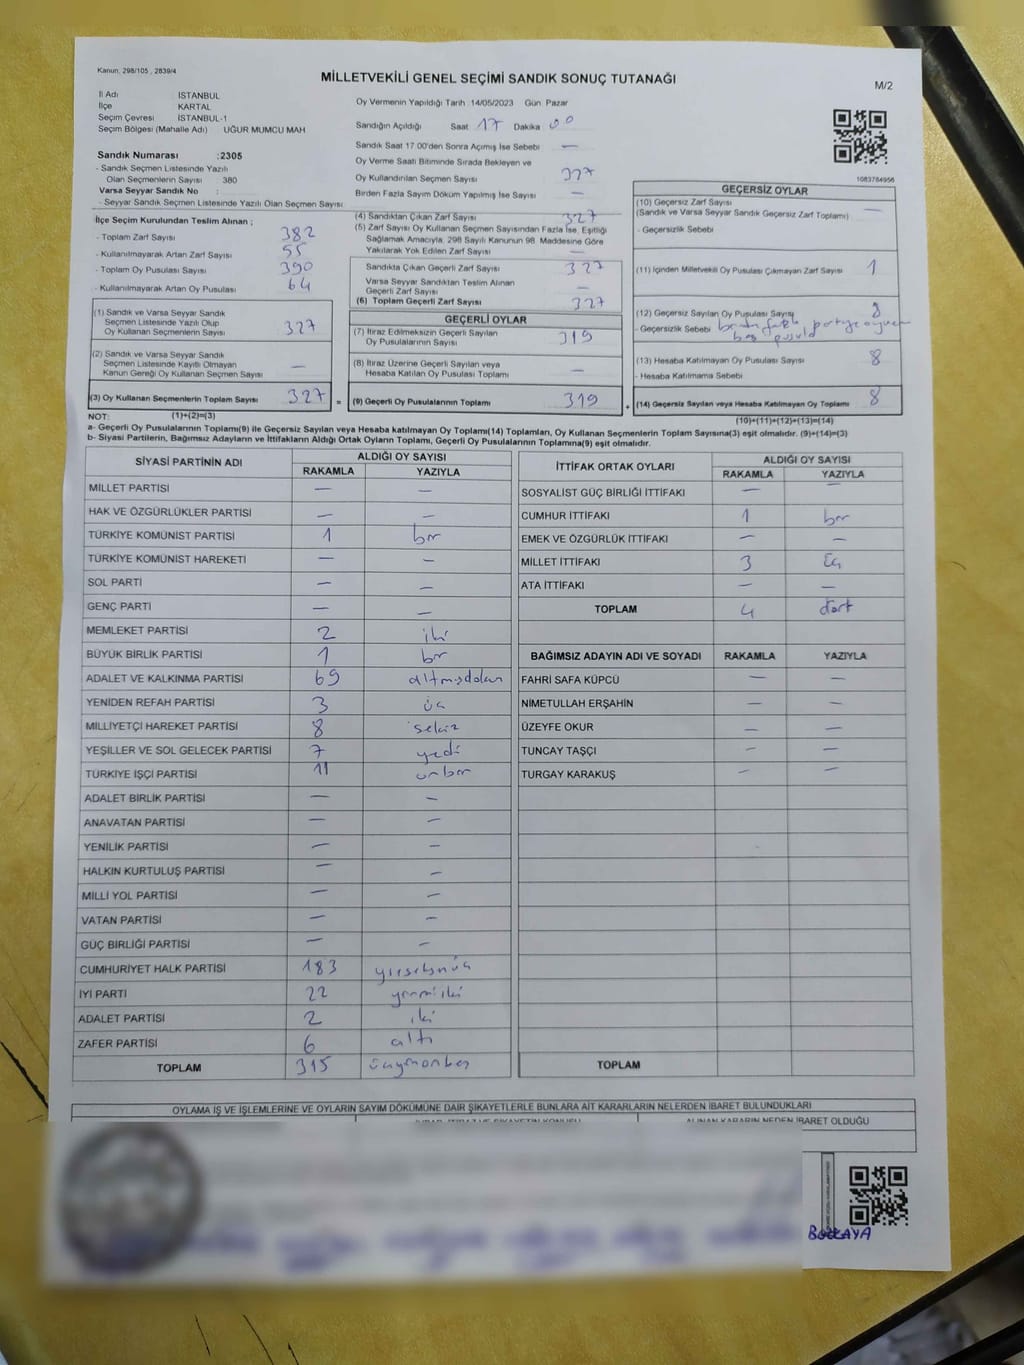 Kanun, 298/105 , 2839/4
MİLLETVEKİLİ GENEL SEÇİMİ SANDIK SONUÇ TUTANAĞI
M/2
İl Adı : İSTANBUL
İlçe : KARTAL
Seçim Çevresi : İSTANBUL-1
Seçim Bölgesi (Mahalle Adı) : UĞUR MUMCU MAH
Sandık Numarası :2305
- Sandık Seçmen Listesinde Yazılı
Olan Seçmenlerin Sayısı : 380
Varsa Seyyar Sandık No :
- Seyyar Sandık Seçmen Listesinde Yazılı Olan Seçmen Sayısı
Oy Vermenin Yapıldığı Tarih 14/05/2023 Gün Pazar
Sandığın Açıldığı Saat 17 Dakika 00
Sandık Saat 17:00'den Sonra Açımış İse Sebebi —
Oy Verme Saati Bitiminde Sırada Bekleyen ve
Oy Kullandırılan Seçmen Sayısı
Birden Fazla Sayım Döküm Yapılmış İse Sayısı —
1083784956
İlçe Seçim Kurulundan Teslim Alınan ;
- Toplam Zarf Sayısı 382
- Kullanılmayarak Artan Zarf Sayısı 55
- Toplam Oy Pusulası Sayısı 390
- Kullanılmayarak Artan Oy Pusulası 64
(1) Sandık ve Varsa Seyyar Sandık
Seçmen Listesinde Yazılı Olup
Oy Kullanan Seçmenlerin Sayısı 327
(2) Sandık ve Varsa Seyyar Sandık
Seçmen Listesinde Kayıtlı Olmayan
Kanun Gereği Oy Kullanan Seçmen Sayısı —
(3) Oy Kullanan Seçmenlerin Toplam Sayısı 327 =
(4) Sandıktan Çıkan Zarf Sayısı 327
(5) Zarf Sayısı Oy Kullanan Seçmen Sayısından Fazla İse, Eşitliği
Sağlamak Amacıyla, 298 Sayılı Kanunun 98. Maddesine Göre
Yakılarak Yok Edilen Zarf Sayısı —
Sandıkta Çıkan Geçerli Zarf Sayısı 327
Varsa Seyyar Sandıktan Teslim Alınan
Geçerli Zarf Sayısı —
(6) Toplam Geçerli Zarf Sayısı 327
GEÇERLİ OYLAR
(7) İtiraz Edilmeksizin Geçerli Sayılan
Oy Pusulalarının Sayısı 319
(8) İtiraz Üzerine Geçerli Sayılan veya
Hesaba Katılan Oy Pusulası Toplamı —
(9) Geçerli Oy Pusulalarının Toplamı 319 +
GEÇERSİZ OYLAR
(10) Geçersiz Zarf Sayısı
(Sandık ve Varsa Seyyar Sandık Geçersiz Zarf Toplamı) —
- Geçersizlik Sebebi
(11) İçinden Milletvekili Oy Pusulası Çıkmayan Zarf Sayısı 1
(12) Geçersiz Sayılan Oy Pusulası Sayısı 8
- Geçersizlik Sebebi birden fazla partiye oy
boş pusula
(13) Hesaba Katılmayan Oy Pusulası Sayısı 8
- Hesaba Katılmama Sebebi
(14) Geçersiz Sayılan veya Hesaba Katılmayan Oy Toplamı 8
NOT: (1)+(2)=(3)
(10)+(11)+(12)+(13)=(14)
a- Geçerli Oy Pusulalarının Toplamı(9) ile Geçersiz Sayılan veya Hesaba katılmayan Oy Toplamı(14) Toplamları, Oy Kullanan Seçmenlerin Toplam Sayısına(3) eşit olmalıdır. (9)+(14)=(3)
b- Siyasi Partilerin, Bağımsız Adayların ve İttifakların Aldığı Ortak Oyların Toplamı, Geçerli Oy Pusulalarının Toplamına(9) eşit olmalıdır.
SİYASİ PARTİNİN ADI ALDIĞI OY SAYISI
RAKAMLA YAZIYLA
MİLLET PARTİSİ — —
HAK VE ÖZGÜRLÜKLER PARTİSİ — —
TÜRKİYE KOMÜNİST PARTİSİ 1 bir
TÜRKİYE KOMÜNİST HAREKETİ — —
SOL PARTİ — —
GENÇ PARTİ — —
MEMLEKET PARTİSİ 2 iki
BÜYÜK BİRLİK PARTİSİ 1 bir
ADALET VE KALKINMA PARTİSİ 69 altmışdokuz
YENİDEN REFAH PARTİSİ 3 üç
MİLLİYETÇİ HAREKET PARTİSİ 8 sekiz
YEŞİLLER VE SOL GELECEK PARTİSİ 7 yedi
TÜRKİYE İŞÇİ PARTİSİ 11 onbir
ADALET BİRLİK PARTİSİ — —
ANAVATAN PARTİSİ — —
YENİLİK PARTİSİ — —
HALKIN KURTULUŞ PARTİSİ — —
MİLLİ YOL PARTİSİ — —
VATAN PARTİSİ — —
GÜÇ BİRLİĞİ PARTİSİ — —
CUMHURİYET HALK PARTİSİ 183 yüzseksenüç
İYİ PARTİ 22 yirmiiki
ADALET PARTİSİ 2 iki
ZAFER PARTİSİ 6 altı
TOPLAM 315 üçyüzonbeş
İTTİFAK ORTAK OYLARI ALDIĞI OY SAYISI
RAKAMLA YAZIYLA
SOSYALİST GÜÇ BİRLİĞİ İTTİFAKI — —
CUMHUR İTTİFAKI 1 bir
EMEK VE ÖZGÜRLÜK İTTİFAKI — —
MİLLET İTTİFAKI 3 üç
ATA İTTİFAKI — —
TOPLAM 4 dört
BAĞIMSIZ ADAYIN ADI VE SOYADI RAKAMLA YAZIYLA
FAHRİ SAFA KÜPCÜ — —
NİMETULLAH ERŞAHİN — —
ÜZEYFE OKUR — —
TUNCAY TAŞÇI — —
TURGAY KARAKUŞ — —
TOPLAM
OYLAMA İŞ VE İŞLEMLERİNE VE OYLARIN SAYIM DÖKÜMÜNE DAİR ŞİKAYETLERLE BUNLARA AİT KARARLARIN NELERDEN İBARET BULUNDUKLARI
ALINAN KARARIN NEDEN İBARET OLDUĞU